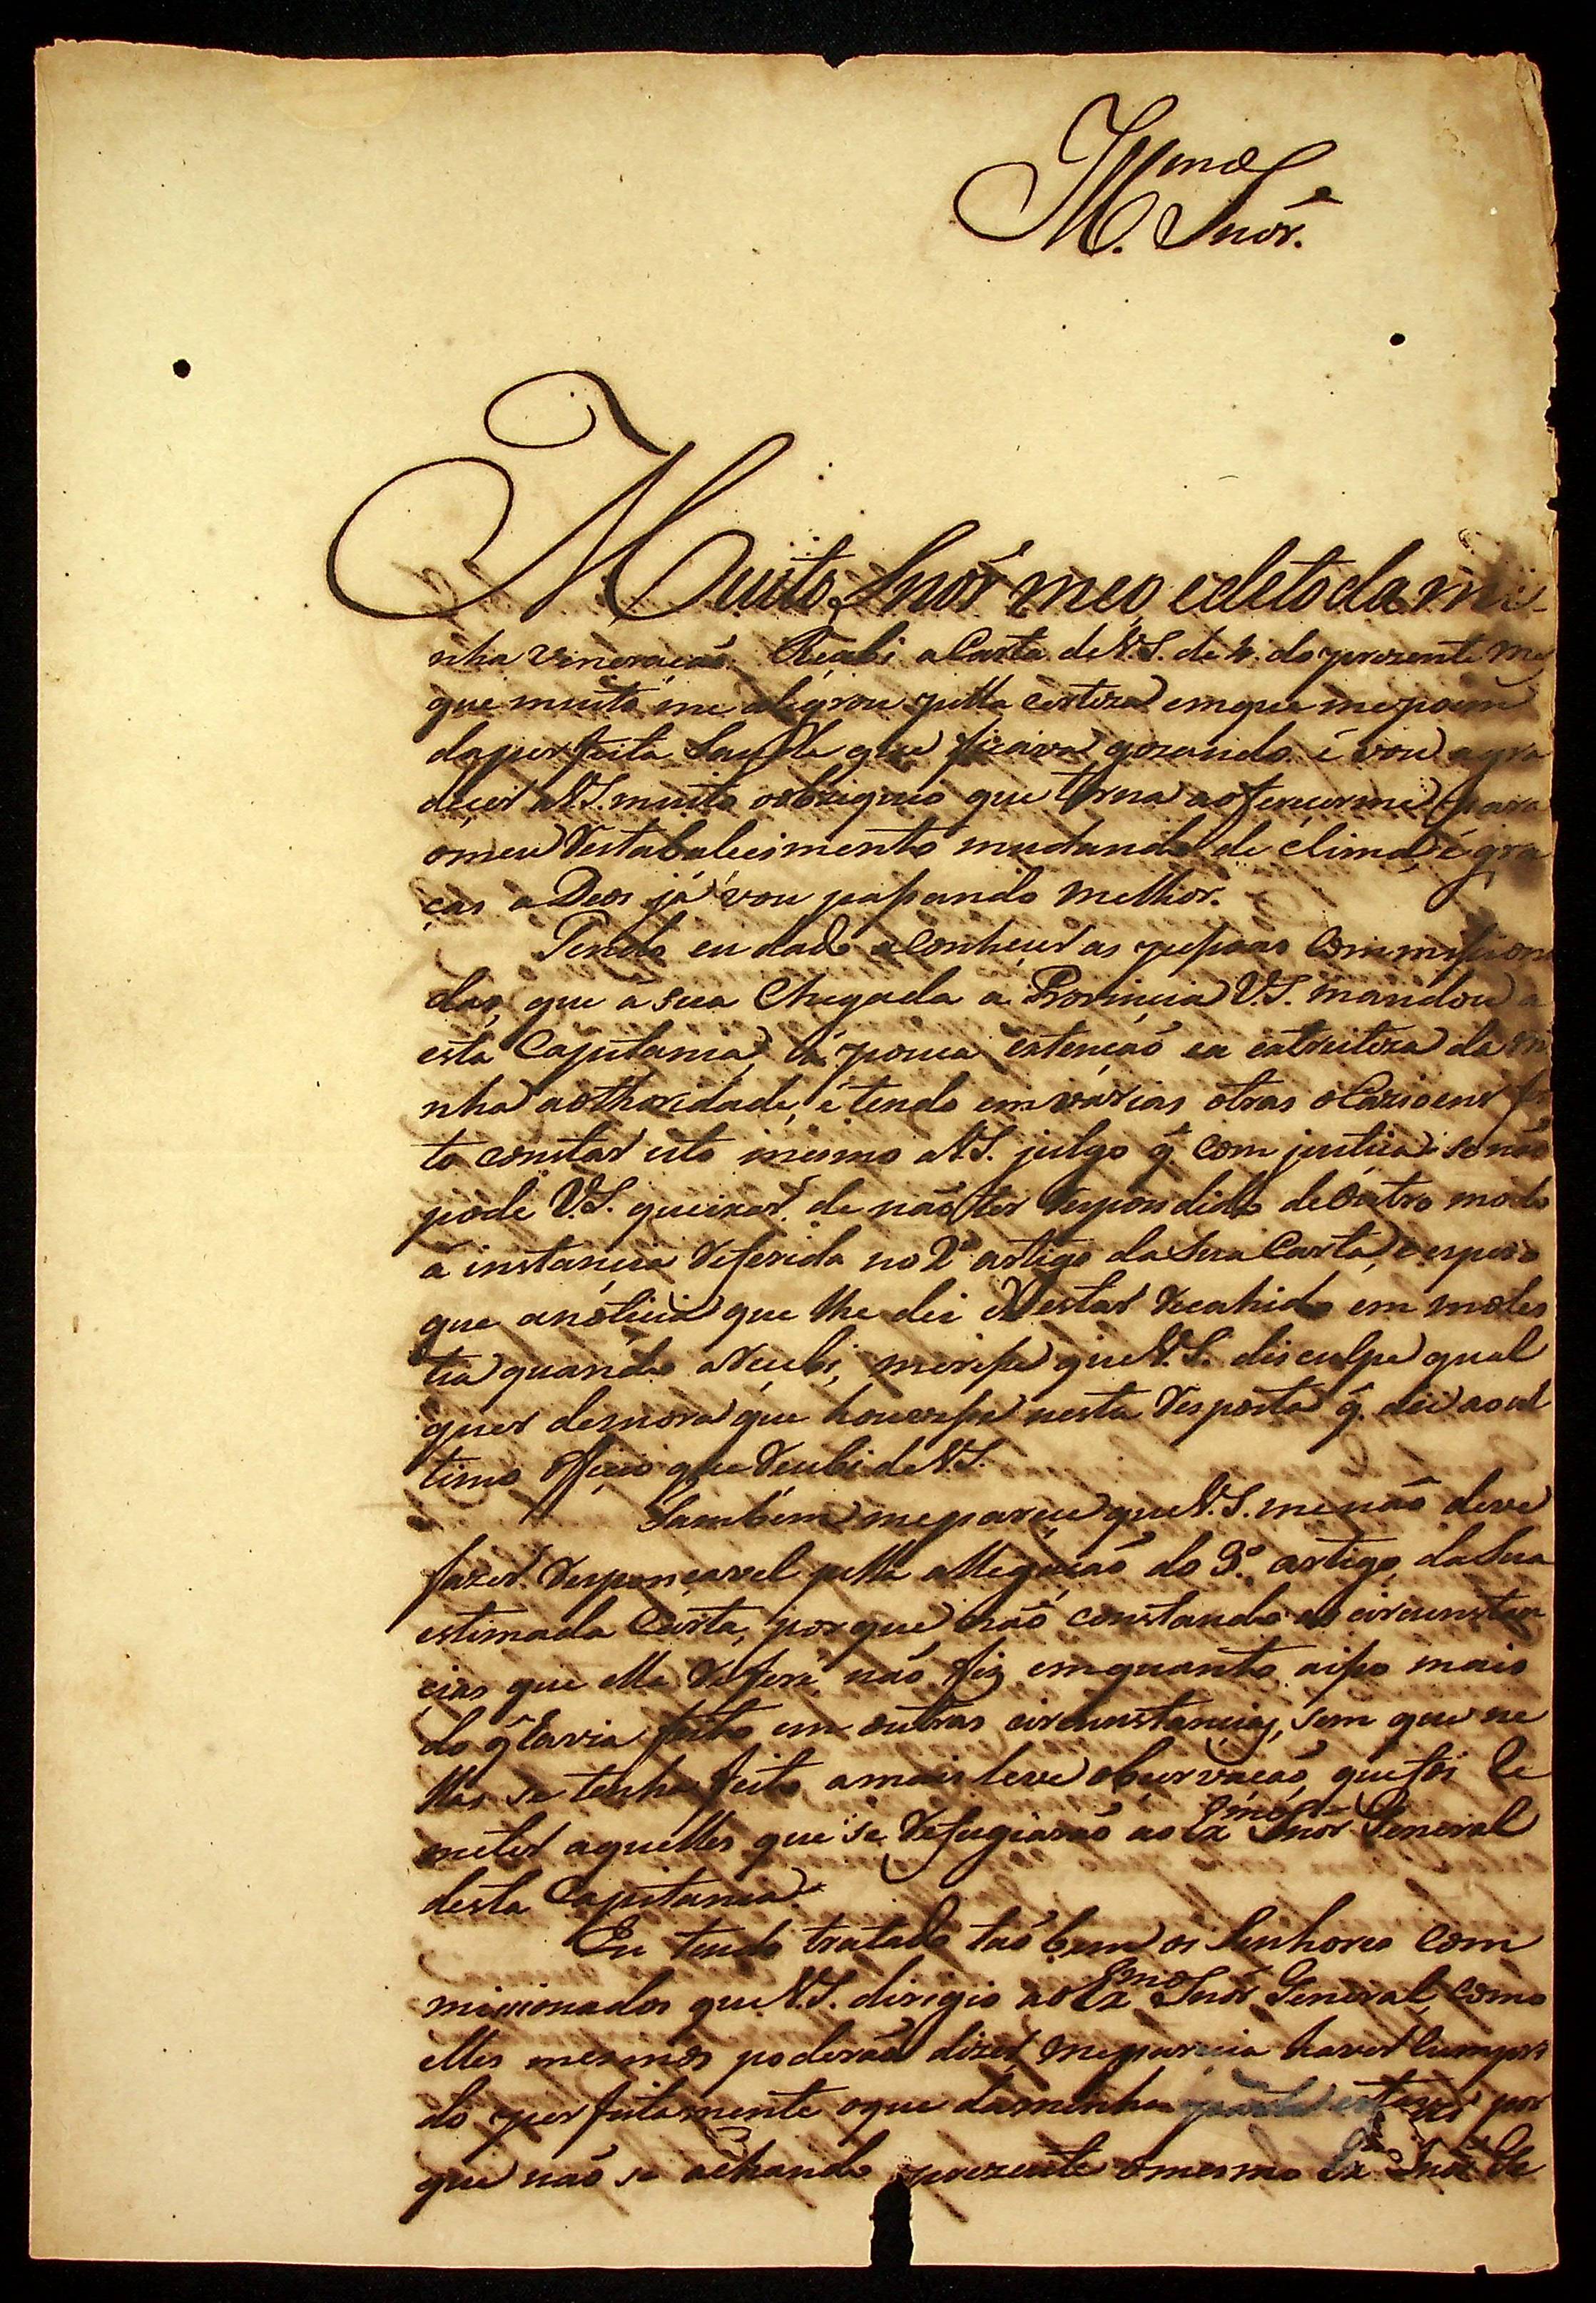 Illmo
M. Snór.
Muito Snór meo, e de toda mi-
nha veneraçaõ. Reçebi a Carta de V.S. de 4. do prezente
que muito me alegrou pella certeza em que me poem
da perfeita Saude que ficava gozando: é vou agra
deçer a V.S. muito o obzequio que torna a ofereçerme para
o meu restabaleçimento mudando de clima, é gra
ças a Deos já vou passando melhor.
Tendo eu dado a Conheçer as pessoas Commission
das, que á sua Chegada a Provinçia V.S. mandou a
esta Capitania, á pouca extençaõ ea estreiteza da mi
nha aothoridade, é tendo em várias otras oCazioens fei
to constar isto mesmo a V.S. julgo q̃ com justiça se naõ
póde V.S. queixar de naõ ter respondido de Outro modo
á instançia referida no 2º artigo da Sua Carta, e espero
que a notiçia que lhe dei de estar recahido em moles
tia quando a reçebi, meresse que V.S. disculpe qual
quer demora que houvesse nesta resposta q̃ dei ao ul
timo Ofiçio que reçebi de V.S.
Também me pareçe que V.S. me naõ deve
fazer responçavel pella allegaçaõ do 3.º artigo da Sua
estimada Carta, porque naõ constando as circunstan
çias que ella refere, naõ fiz emquanto aisso mais
do q̃ Havia feito em outras circunstançias, sem que ne
llas se tenha feito a mais leve obçervaçaõ, que foi Re
meter aquelles que se refugiaraõ ao Exmo Snór General
desta Capitania.
Eu tendo tratado taõ bem os Senhores Com
micionados que V.S. dirigio ao Exmo Snór General, Como
elles mesmos poderaõ dizer, me pareçia haver Cumpri
do perfeitamente o que da minha parte estava, por
que naõ se achando prezente o mesmo Exmo Snór Ge